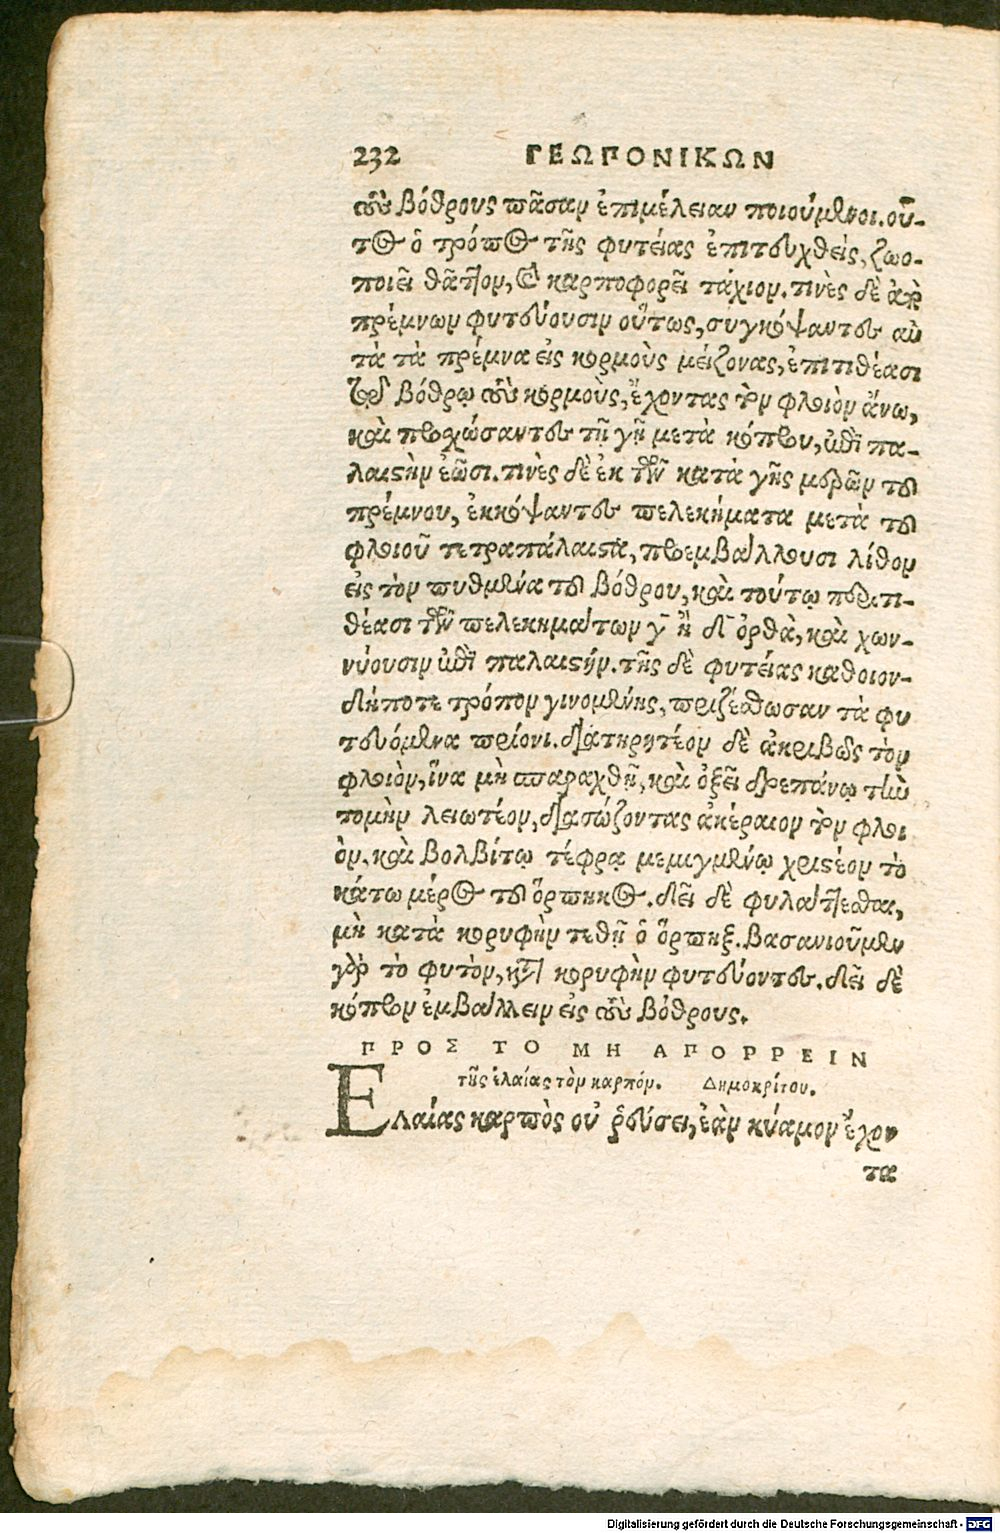 232 ΓΕΩΠΟΝΙΚΩΝ
τοὺς βόθρους πᾶσαν ἐπιμέλειαν ποιούμενοι. οὕ-
τος ὁ τρόπος τῆς φυτείας ἐπιτευχθεὶς, ζωο-
ποιεῖ θᾶττον, καὶ καρποφορεῖ τάχιον. τινὲς δὲ ἀπὸ
πρέμνων φυτεύουσιν οὕτως, συγκόψαντες αὐ
τὰ τὰ πρέμνα εἰς κορμοὺς μείζονας, ἐπιτιθέασι
τῷ βόθρῳ τοὺς κορμοὺς, ἔχοντας τὸν φλοιὸν ἄνω,
καὶ προχώσαντες τῇ γῇ μετὰ κόπρου, ἐπὶ πα-
λαιστὴν ἐῶσι. τινὲς δὲ ἐκ τῶν κατὰ γῆς μερῶν τοῦ
πρέμνου, ἐκκόψαντες πελεκήματα μετὰ τοῦ
φλοιοῦ τετραπάλαιστα, προεμβάλλουσι λίθον
εἰς τὸν πυθμένα τοῦ βόθρου, καὶ τούτῳ περιτι-
θέασι τῶν πελεκημάτων γ ἢ δ ὀρθὰ, καὶ χων-
νύουσιν ἐπὶ παλαιστήν. τῆς δὲ φυτείας καθοιον-
δήποτε τρόπον γινομένης, πριζέσθωσαν τὰ φυ
τευόμενα πρίονι. διατηρητέον δὲ ἀκριβῶς τὸν
φλοιὸν, ἵνα μὴ σπαραχθῇ, καὶ ὀξεῖ δρεπάνῳ τὴν
τομὴν λειωτέον, διασώζοντας ἀκέραιον τὸν φλοι
ὸν. καὶ βολβίτῳ τέφρᾳ μεμιγμένῳ χριστέον τὸ
κάτω μέρος τοῦ ὅρπηκος. δεῖ δὲ φυλάττεσθαι,
μὴ κατὰ κορυφὴν τεθῇ ὁ ὅρπηξ. βασανιοῦμεν
γὰρ τὸ φυτὸν, κατὰ κορυφὴν φυτεύοντες. δεῖ δὲ
κόπρον ἐμβάλλειν εἰς τοὺς βόθρους.
ΠΡΟΣ ΤΟ ΜΗ ΑΠΟΡΡΕΙΝ
τῆς ἐλαίας τὸν καρπόν. Δημοκρίτου.
Ελαίας καρπὸς οὐ ῥεύσει, ἐὰν κύαμον ἔχον
τα
Digitalisierung gefördert durch die Deutsche Forschungsgemeinschaft - DFG